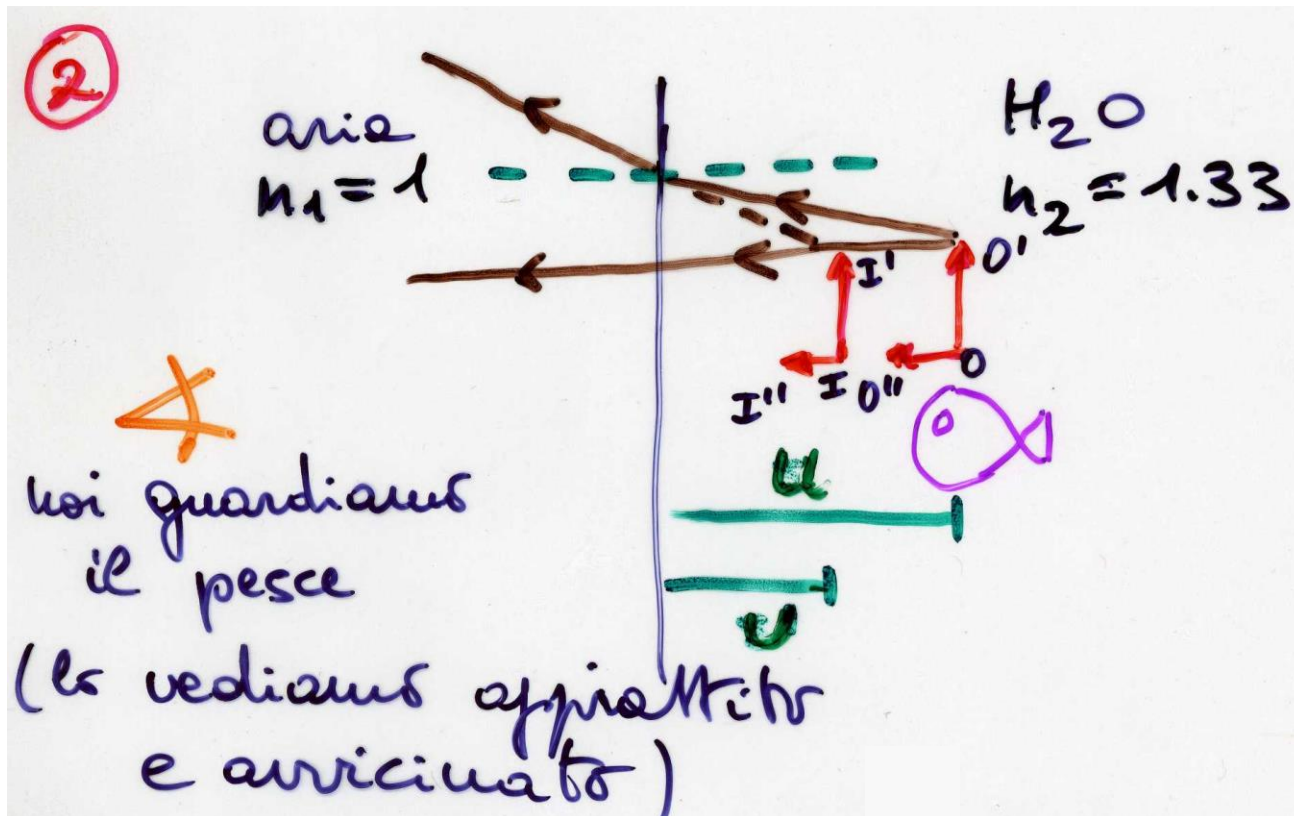 2
aria
n₁ = 1
H₂O
n₂ = 1.33
O'
I'
I'' I O'' O
u
v
noi guardiamo
il pesce
(lo vediamo appiattito
e avvicinato)